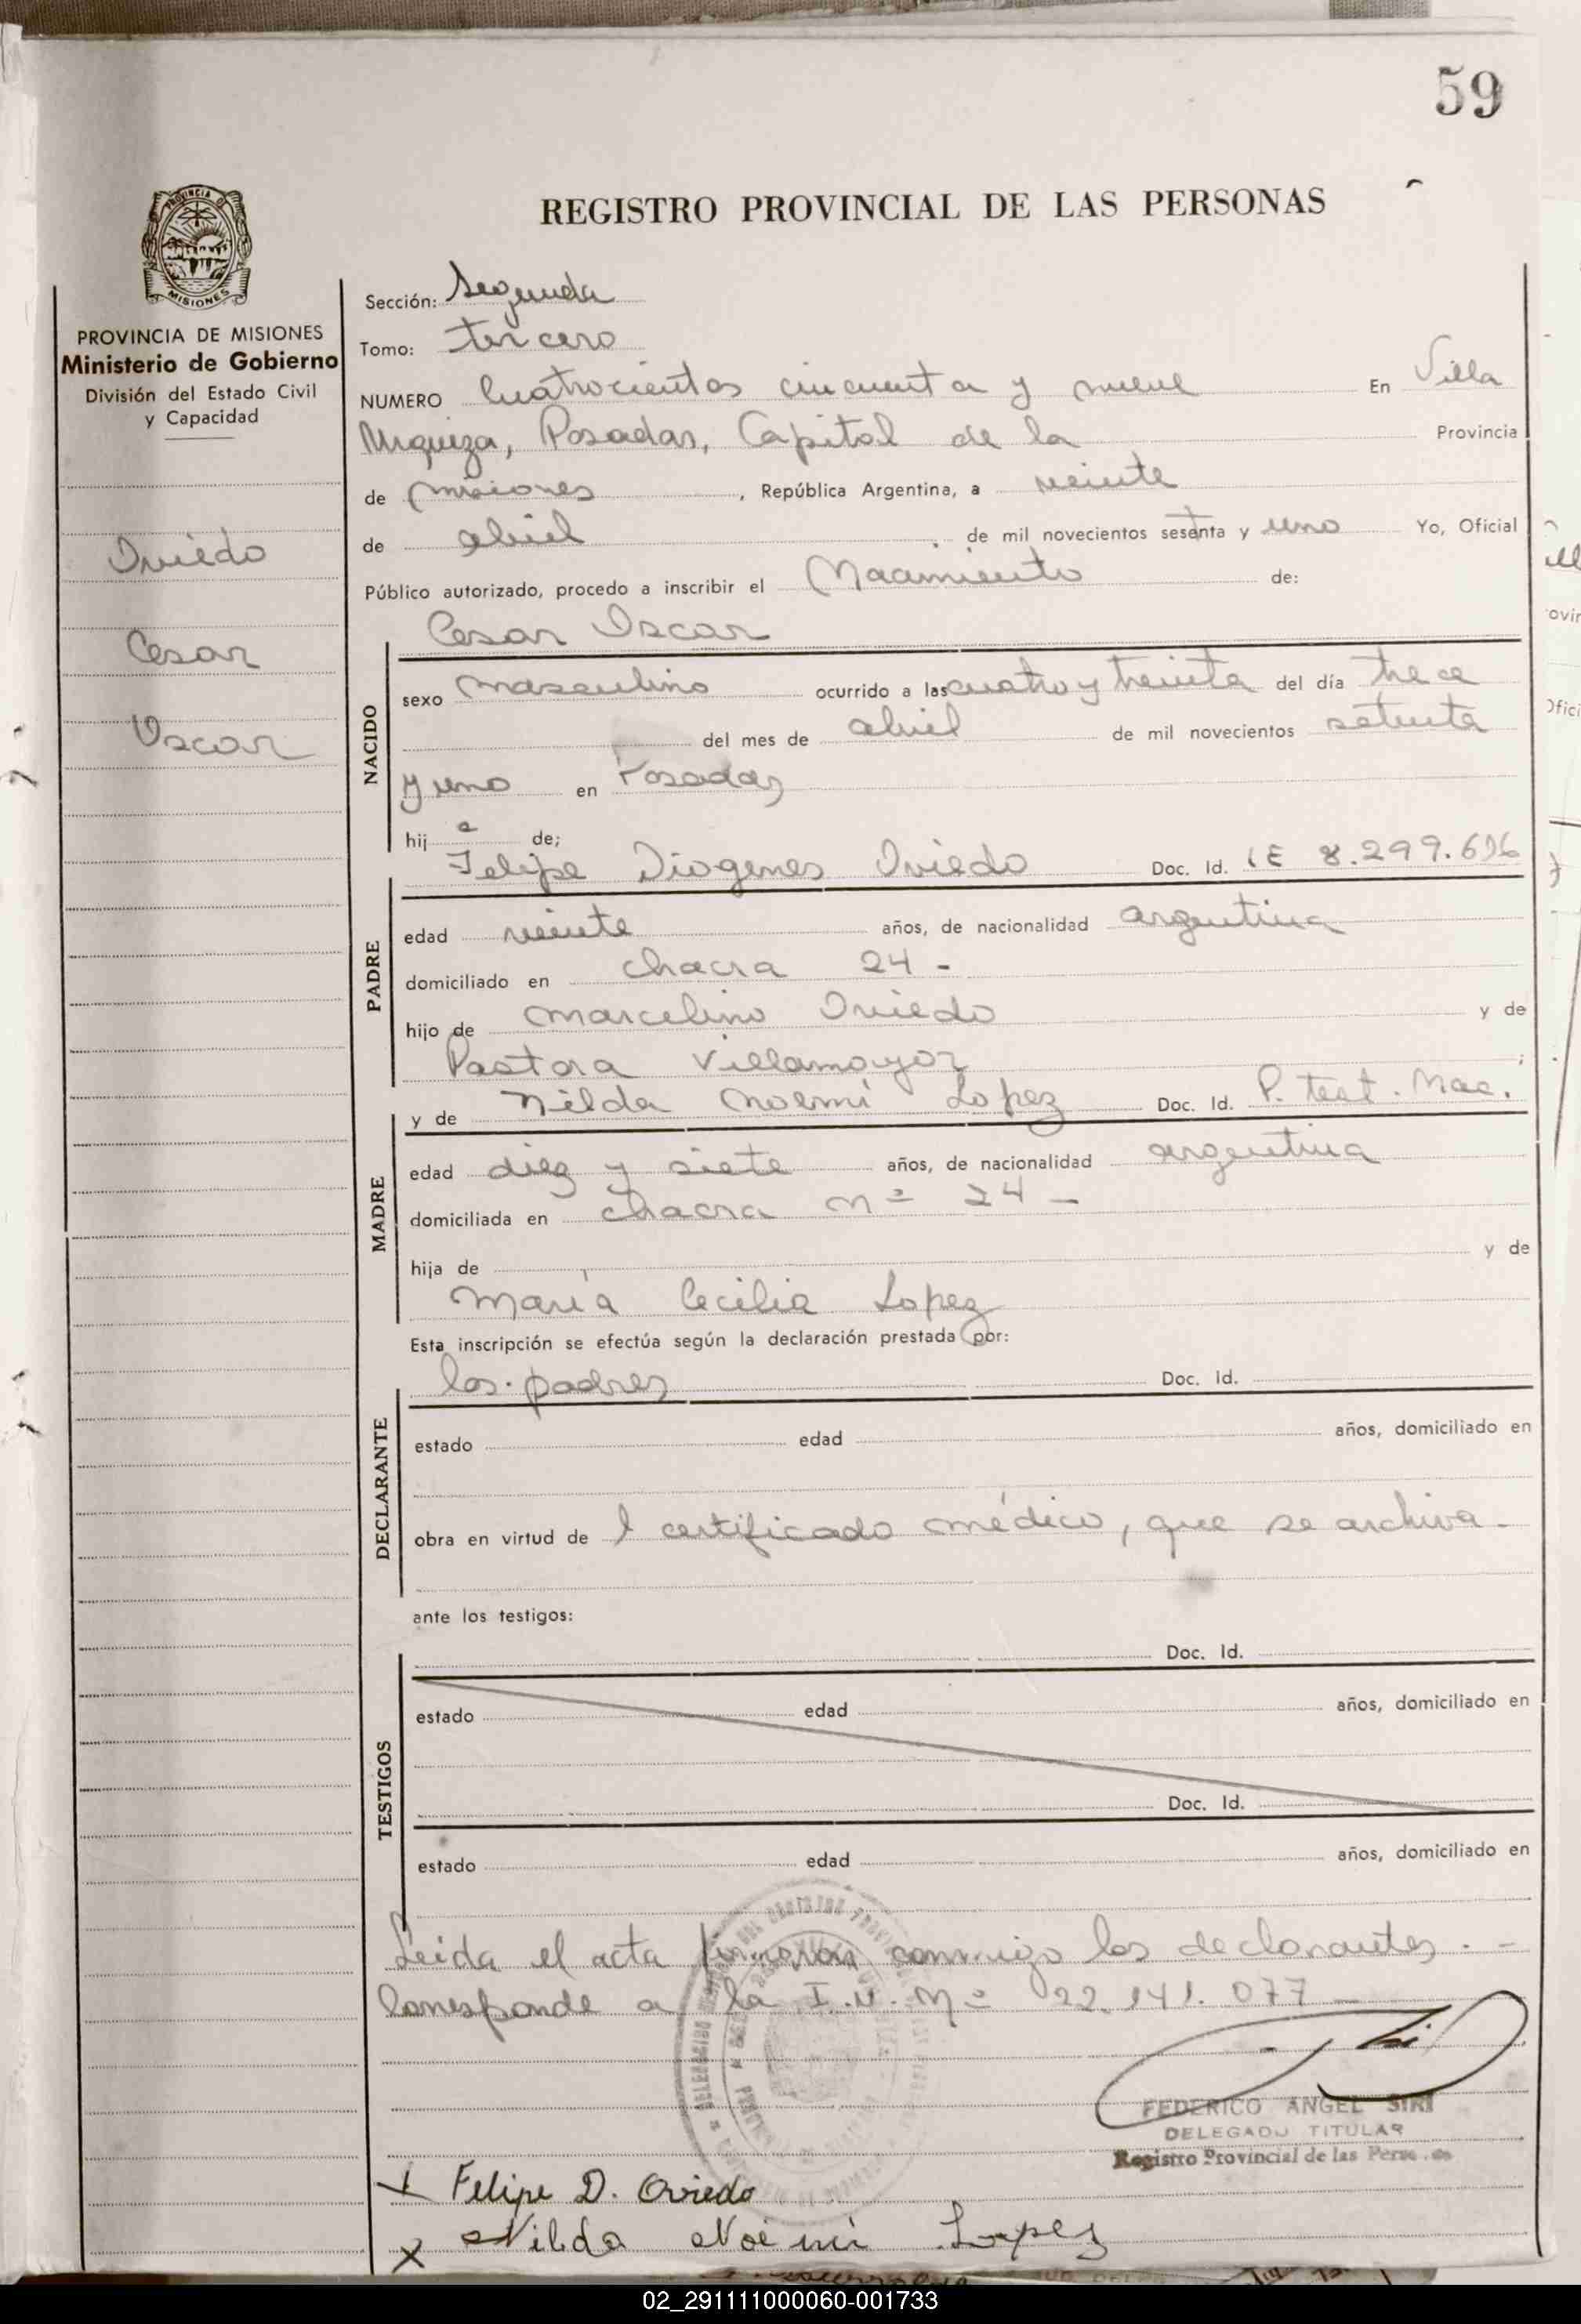 59
REGISTRO PROVINCIAL DE LAS PERSONAS
PROVINCIA
MISIONES
PROVINCIA DE MISIONES
Ministerio de Gobierno
División del Estado Civil
y Capacidad
Oviedo
Cesar
Oscar
Sección: Segunda
Tomo: tercero
NUMERO Cuatrocientos cincuenta y nueve En Villa
Urquiza, Posadas, Capital de la Provincia
de Misiones, República Argentina, a veinte
de abril de mil novecientos sesenta y uno Yo, Oficial
Público autorizado, procedo a inscribir el Nacimiento de:
Cesar Oscar
NACIDO
sexo masculino ocurrido a las cuatro y treinta del día trece
del mes de abril de mil novecientos setenta
y uno en Posadas
hij o de;
Felipe Diogenes Oviedo Doc. Id. LE 8.299.696
PADRE
edad veinte años, de nacionalidad argentina
domiciliado en chacra 24 -
hijo de Marcelino Oviedo y de
Pastora Villamayor ;
y de Nilda Noemí Lopez Doc. Id. P. test. Nac.
MADRE
edad diez y siete años, de nacionalidad argentina
domiciliada en chacra nº 24 -
hija de y de
María Cecilia Lopez
Esta inscripción se efectúa según la declaración prestada por:
los padres Doc. Id.
DECLARANTE
estado edad años, domiciliado en
obra en virtud de 1 certificado médico, que se archiva -
ante los testigos:
Doc. Id.
TESTIGOS
estado edad años, domiciliado en
Doc. Id.
estado edad años, domiciliado en
Leida el acta firmaron conmigo los declarantes. -
Corresponde a la I.N. Nº 22.141.077 -
FEDERICO ANGEL SIRI
DELEGADO TITULAR
Registro Provincial de las
x Felipe D. Oviedo
x Nilda Noemí Lopez
02_291111000060-001733